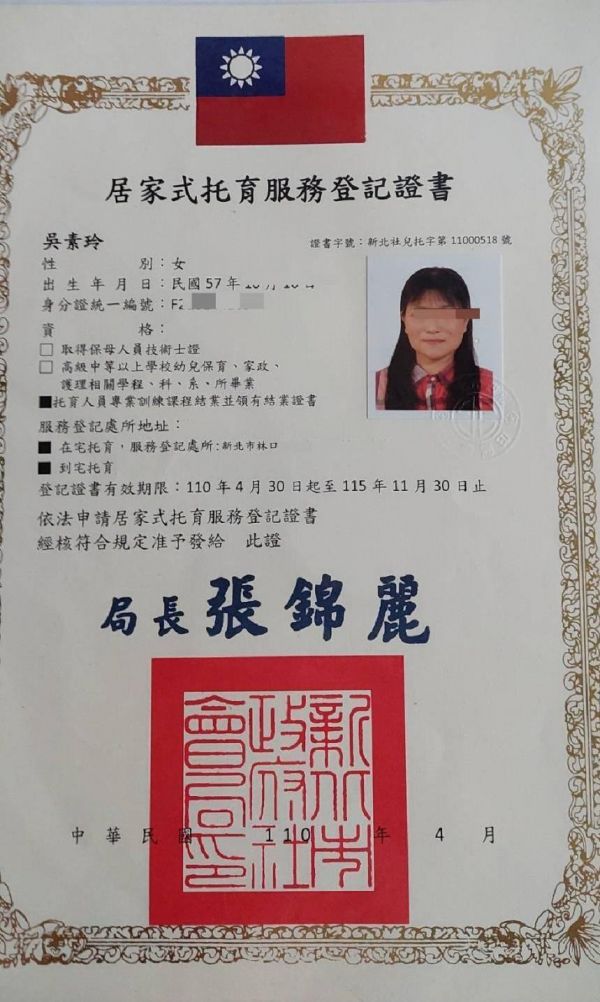 居家式托育服務登記證書
吳素玲
證書字號：新北社兒托字第 11000518 號
性 別：女
出生年月日：民國 57 年
身分證統一編號：F2
資 格：
□ 取得保母人員技術士證
□ 高級中等以上學校幼兒保育、家政、
護理相關學程、科、系、所畢業
■托育人員專業訓練課程結業並領有結業證書
服務登記處所地址：
■ 在宅托育，服務登記處所:新北市林口
■ 到宅托育
登記證書有效期限：110 年 4 月 30 日起至 115 年 11 月 30 日止
依法申請居家式托育服務登記證書
經核符合規定准予發給 此證
局長 張錦麗
新北市政府社會局印
中華民國 110 年 4 月